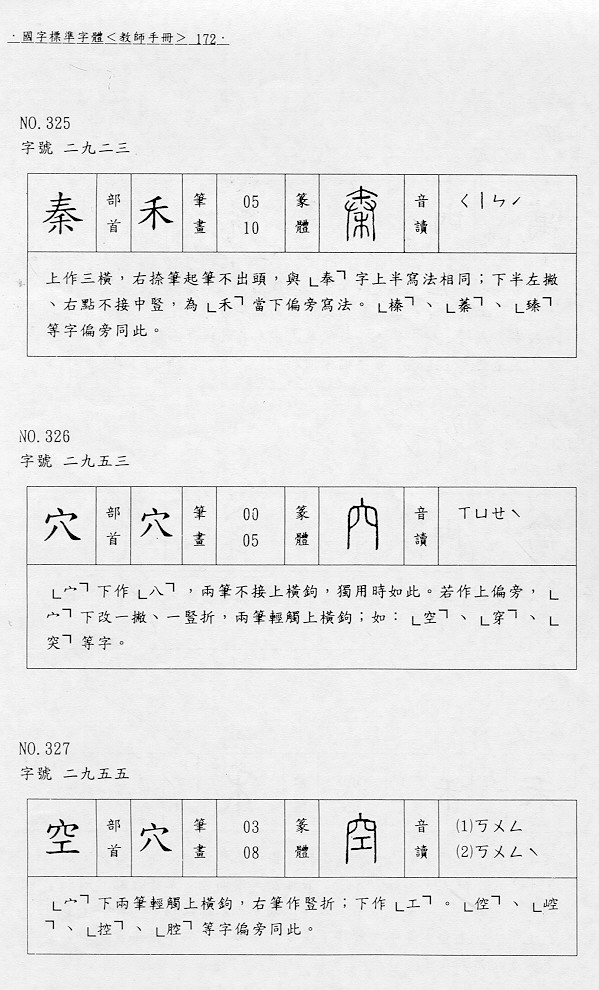 ·國字標準字體＜教師手冊＞ 172·
NO.325
字號 二九二三
秦 部首 禾 筆畫 05 10 篆體 秦 音讀 ㄑㄧㄣˊ
上作三橫，右捺筆起筆不出頭，與「奉」字上半寫法相同；下半左撇
、右點不接中豎，為「禾」當下偏旁寫法。「榛」、「蓁」、「臻」
等字偏旁同此。
NO.326
字號 二九五三
穴 部首 穴 筆畫 00 05 篆體 穴 音讀 ㄒㄩㄝˋ
「宀」下作「八」，兩筆不接上橫鉤，獨用時如此。若作上偏旁，「
宀」下改一撇、一豎折，兩筆輕觸上橫鉤；如：「空」、「穿」、「
突」等字。
NO.327
字號 二九五五
空 部首 穴 筆畫 03 08 篆體 空 音讀 (1)ㄎㄨㄥ (2)ㄎㄨㄥˋ
「宀」下兩筆輕觸上橫鉤，右筆作豎折；下作「工」。「倥」、「崆
」、「控」、「腔」等字偏旁同此。